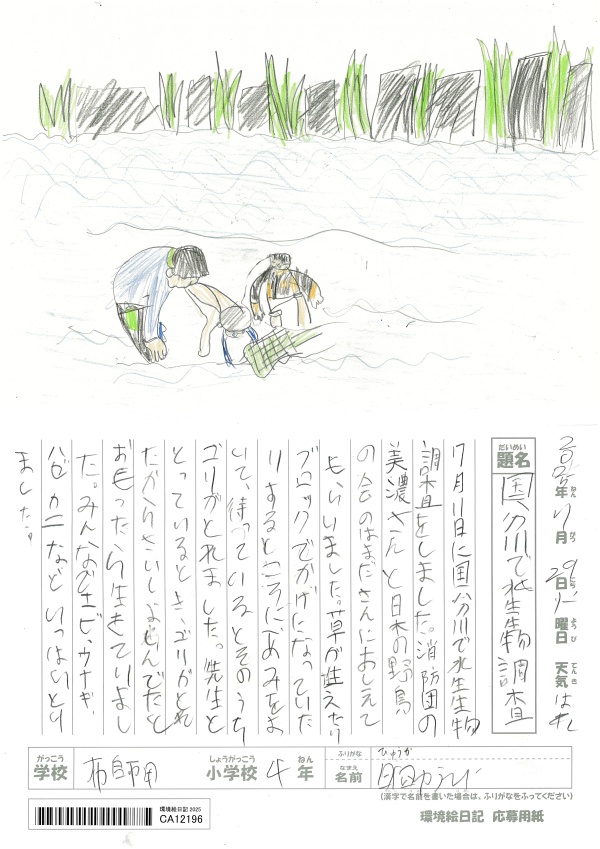 2025年7月29日火曜日 天気 はれ
ねん がつ にち ようび てんき
だいめい
題名
国分川で水生生物調査
7月11日に国分川で水生生物
調査をしました。消防団の
美濃さんと日本の野鳥
の会のはまださんにおしえて
もらいました。草が生えたり
ブロックでかげになっていた
りするところにあみをお
いて、待っているとそのうち
ユリがとれました。先生と
とっているとき、ユリがとれ
たからさいしょしんでたと
おもったら生きていまし
た。みんなでエビ、ウナギ、
ハゼ、カニなどいっぱいとり
ました。
がっこう しょうがっこう ねん
学校 布師田 小学校 4年
ふりがな ひゅうが
なまえ
名前
(漢字で名前を書いた場合は、ふりがなをふってください)
環境絵日記 2025
CA12196
環境絵日記 応募用紙